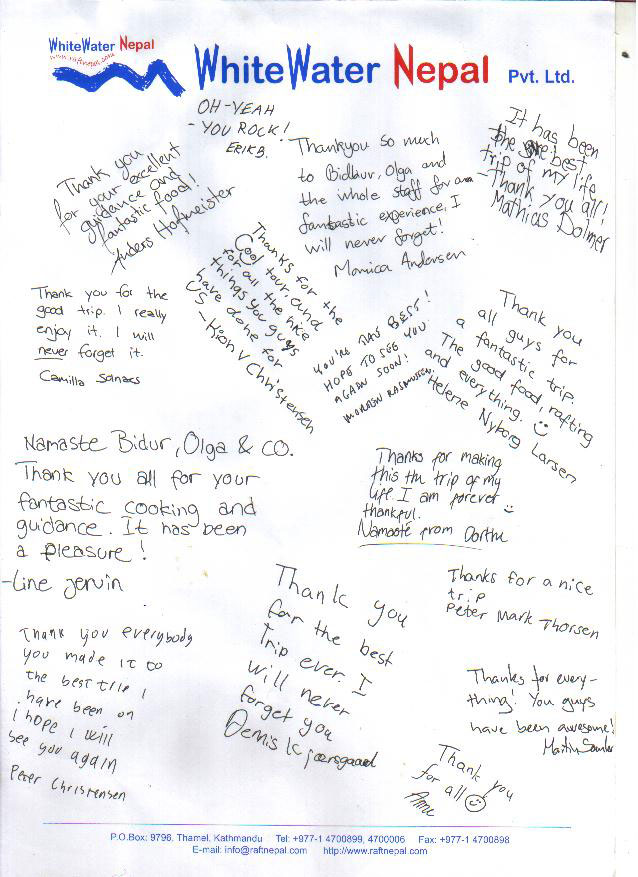 WhiteWater Nepal
www.raftnepal.com
WhiteWater Nepal Pvt. Ltd.
OH-YEAH
- YOU ROCK!
ERIK B.
Thank you
for your excellent
guidance and
fantastic food!
Anders Hofmeister
Thankyou so much
to Bidhur, Olga and
the whole staff for an
fantastic experience. I
will never forget!
Monica Andersen
It has been
the best
trip of my life
- Thank you all!
Mathias Dalmer
Thanks for the
Cool tour, and
for all the nice
things you guys
have done for
us
- Kian V Christensen
Thank you for the
good trip. I really
enjoy it. I will
never forget it.
Camilla
YOU'RE THA BEST!
HOPE TO SEE YOU
AGAIN SOON!
MORTEN RASMUSSEN
Thank you
all guys for
a fantastic trip
The good food, rafting
and everything. ☺
Helene Nyborg Larsen
Namaste Bidur, Olga & CO.
Thank you all for your
fantastic cooking and
guidance. It has been
a pleasure!
-Line Jervin
Thanks for making
this thu trip of my
life. I am forever
thankful. ☺
Namasté from Dorthu
Thank you
for the best
trip ever. I
will never
forget you
Dennis Kjærsgaard
Thanks for a nice
trip
Peter Mark Thorsen
Thank you everybody
you made it to
the best trip I
have been on
I hope I will
see you again
Peter Christensen
Thanks for every-
thing! You guys
have been awesome!
Martin
Thank you
for all ☺
Anne
P.O.Box: 9796, Thamel, Kathmandu Tel: +977-1 4700899, 4700006 Fax: +977-1 4700898
E-mail: info@raftnepal.com http://www.raftnepal.com